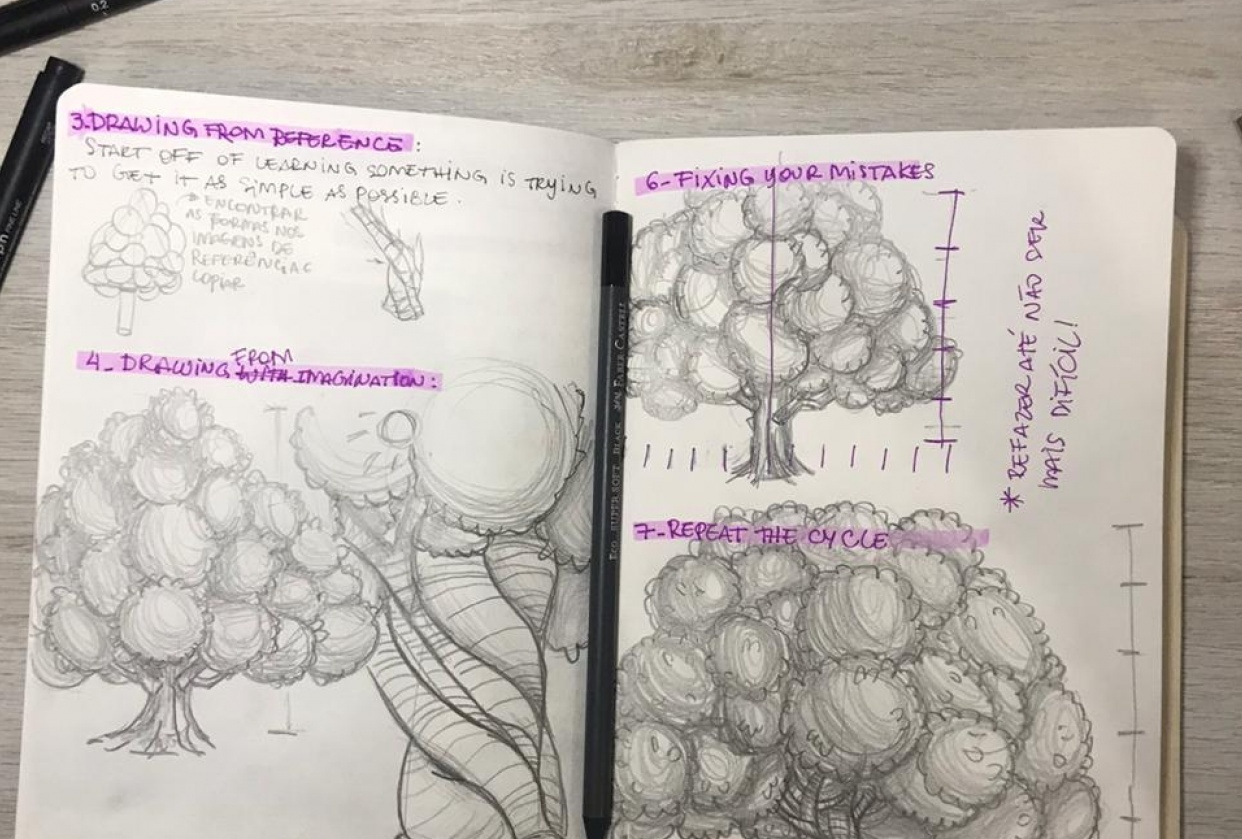 0.2
3. DRAWING FROM REFERENCE:
START OFF OF LEARNING SOMETHING IS TRYING
TO GET IT AS SIMPLE AS POSSIBLE.
ENCONTRAR
AS FORMAS NOS
IMAGENS DE
REFERÊNCIA E
COPIAR
4- DRAWING WITH FROM IMAGINATION:
6- FIXING YOUR MISTAKES
* REFAZER ATÉ NÃO SER
MAIS DIFÍCIL!
7- REPEAT THE CYCLE
ECO SUPER SOFT BLACK FABER CASTELL